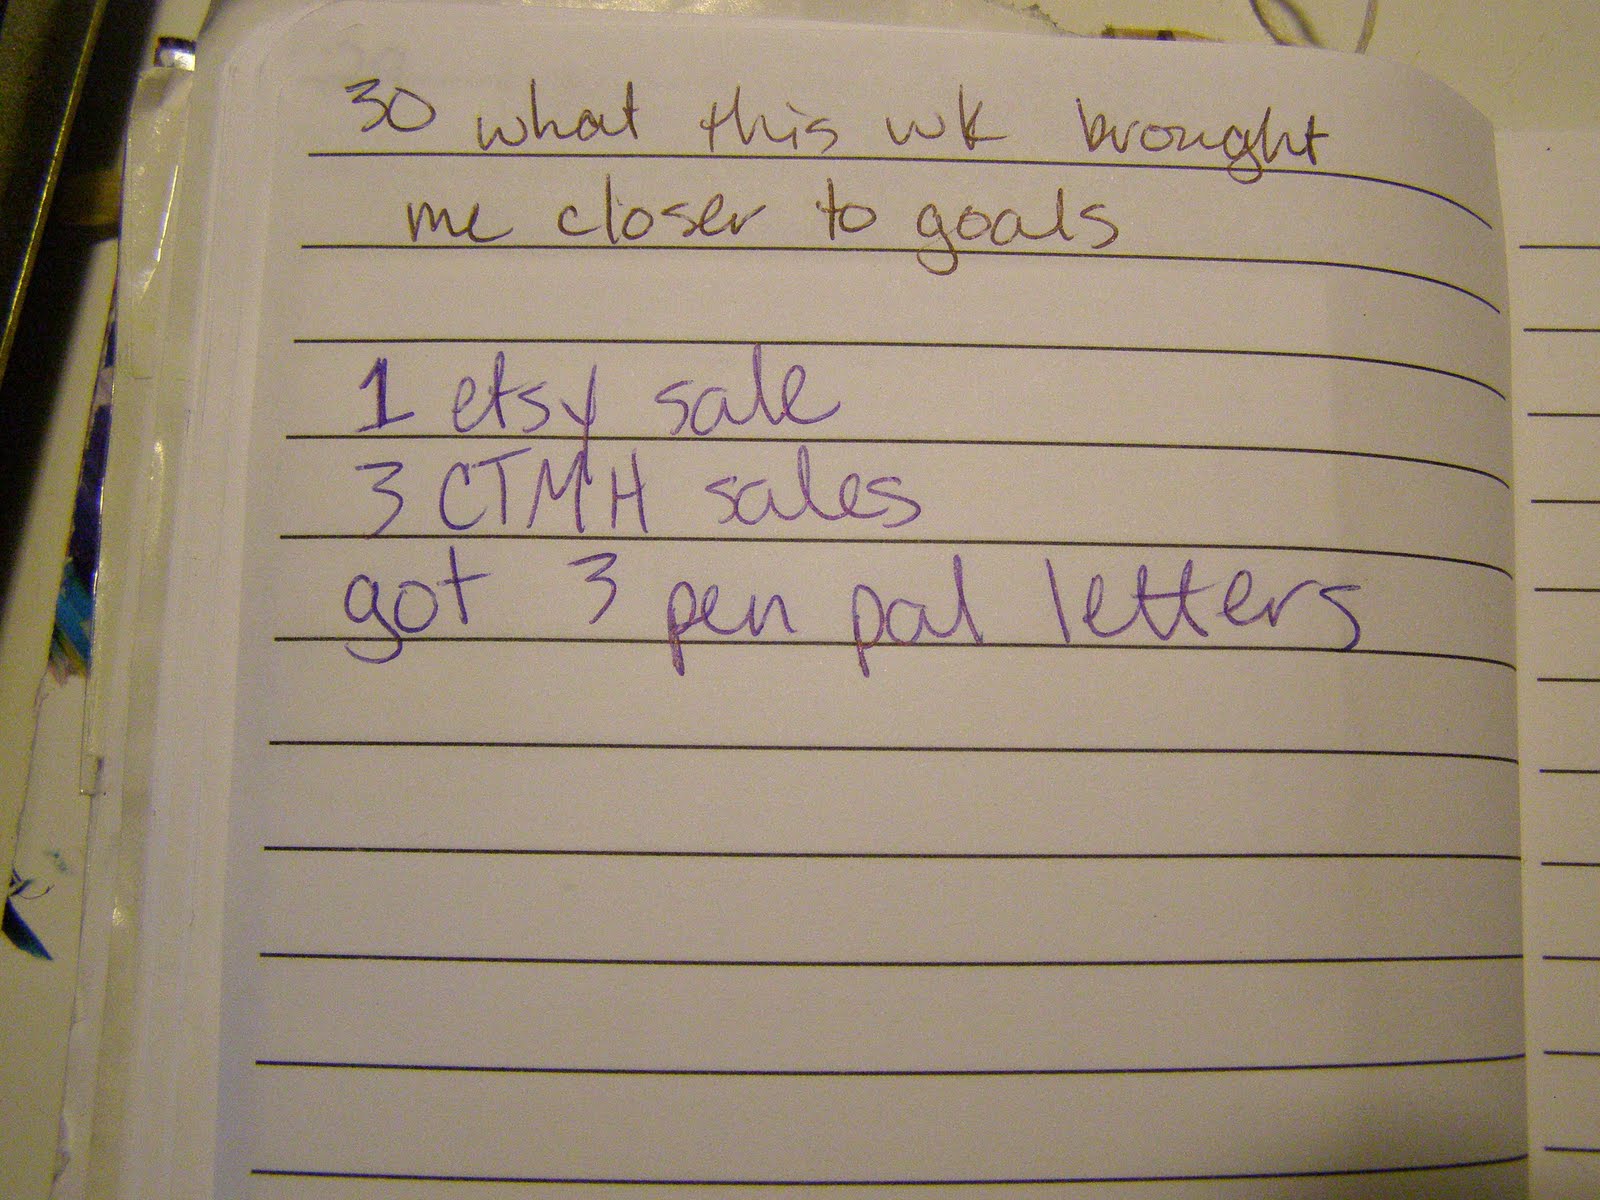 30 what this wk brought
me closer to goals
1 etsy sale
3 CTMH sales
got 3 pen pal letters